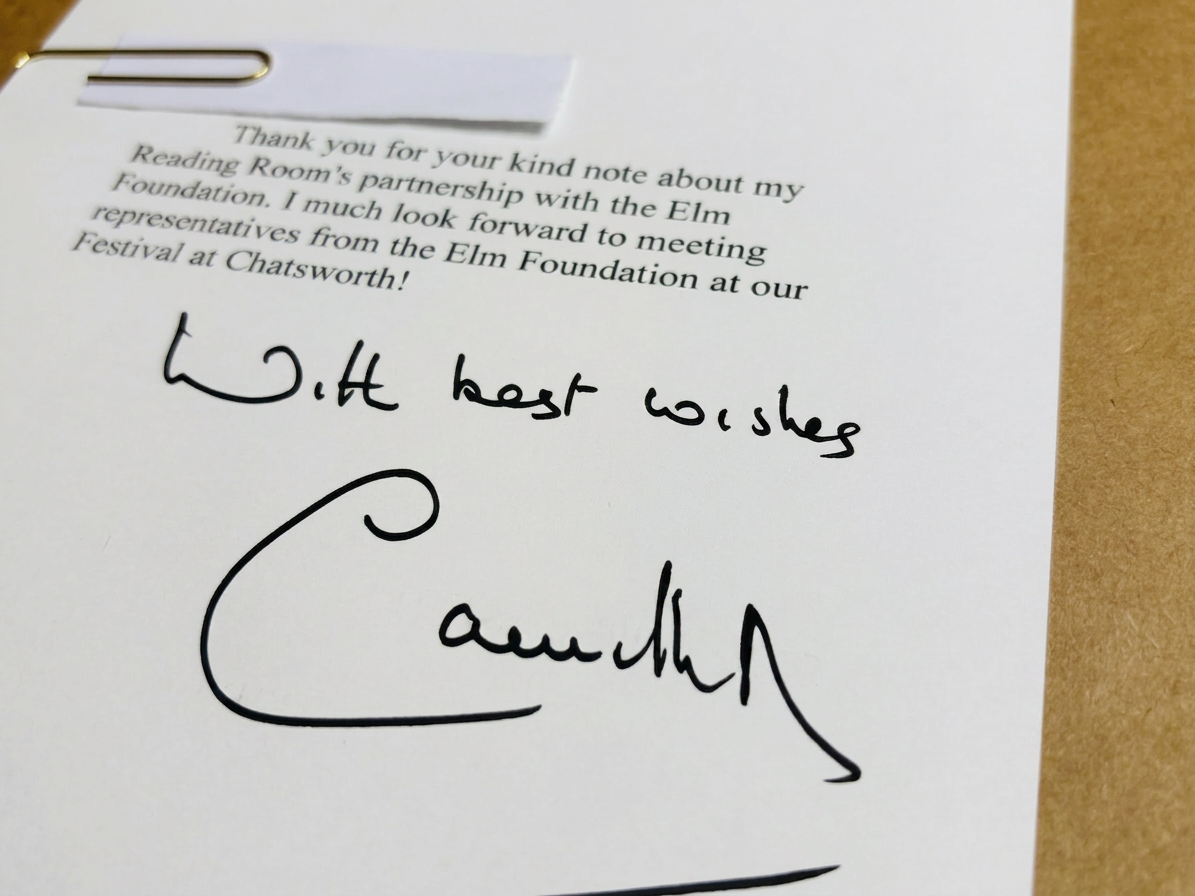 Thank you for your kind note about my
Reading Room's partnership with the Elm
Foundation. I much look forward to meeting
representatives from the Elm Foundation at our
Festival at Chatsworth!
With best wishes
Camilla R